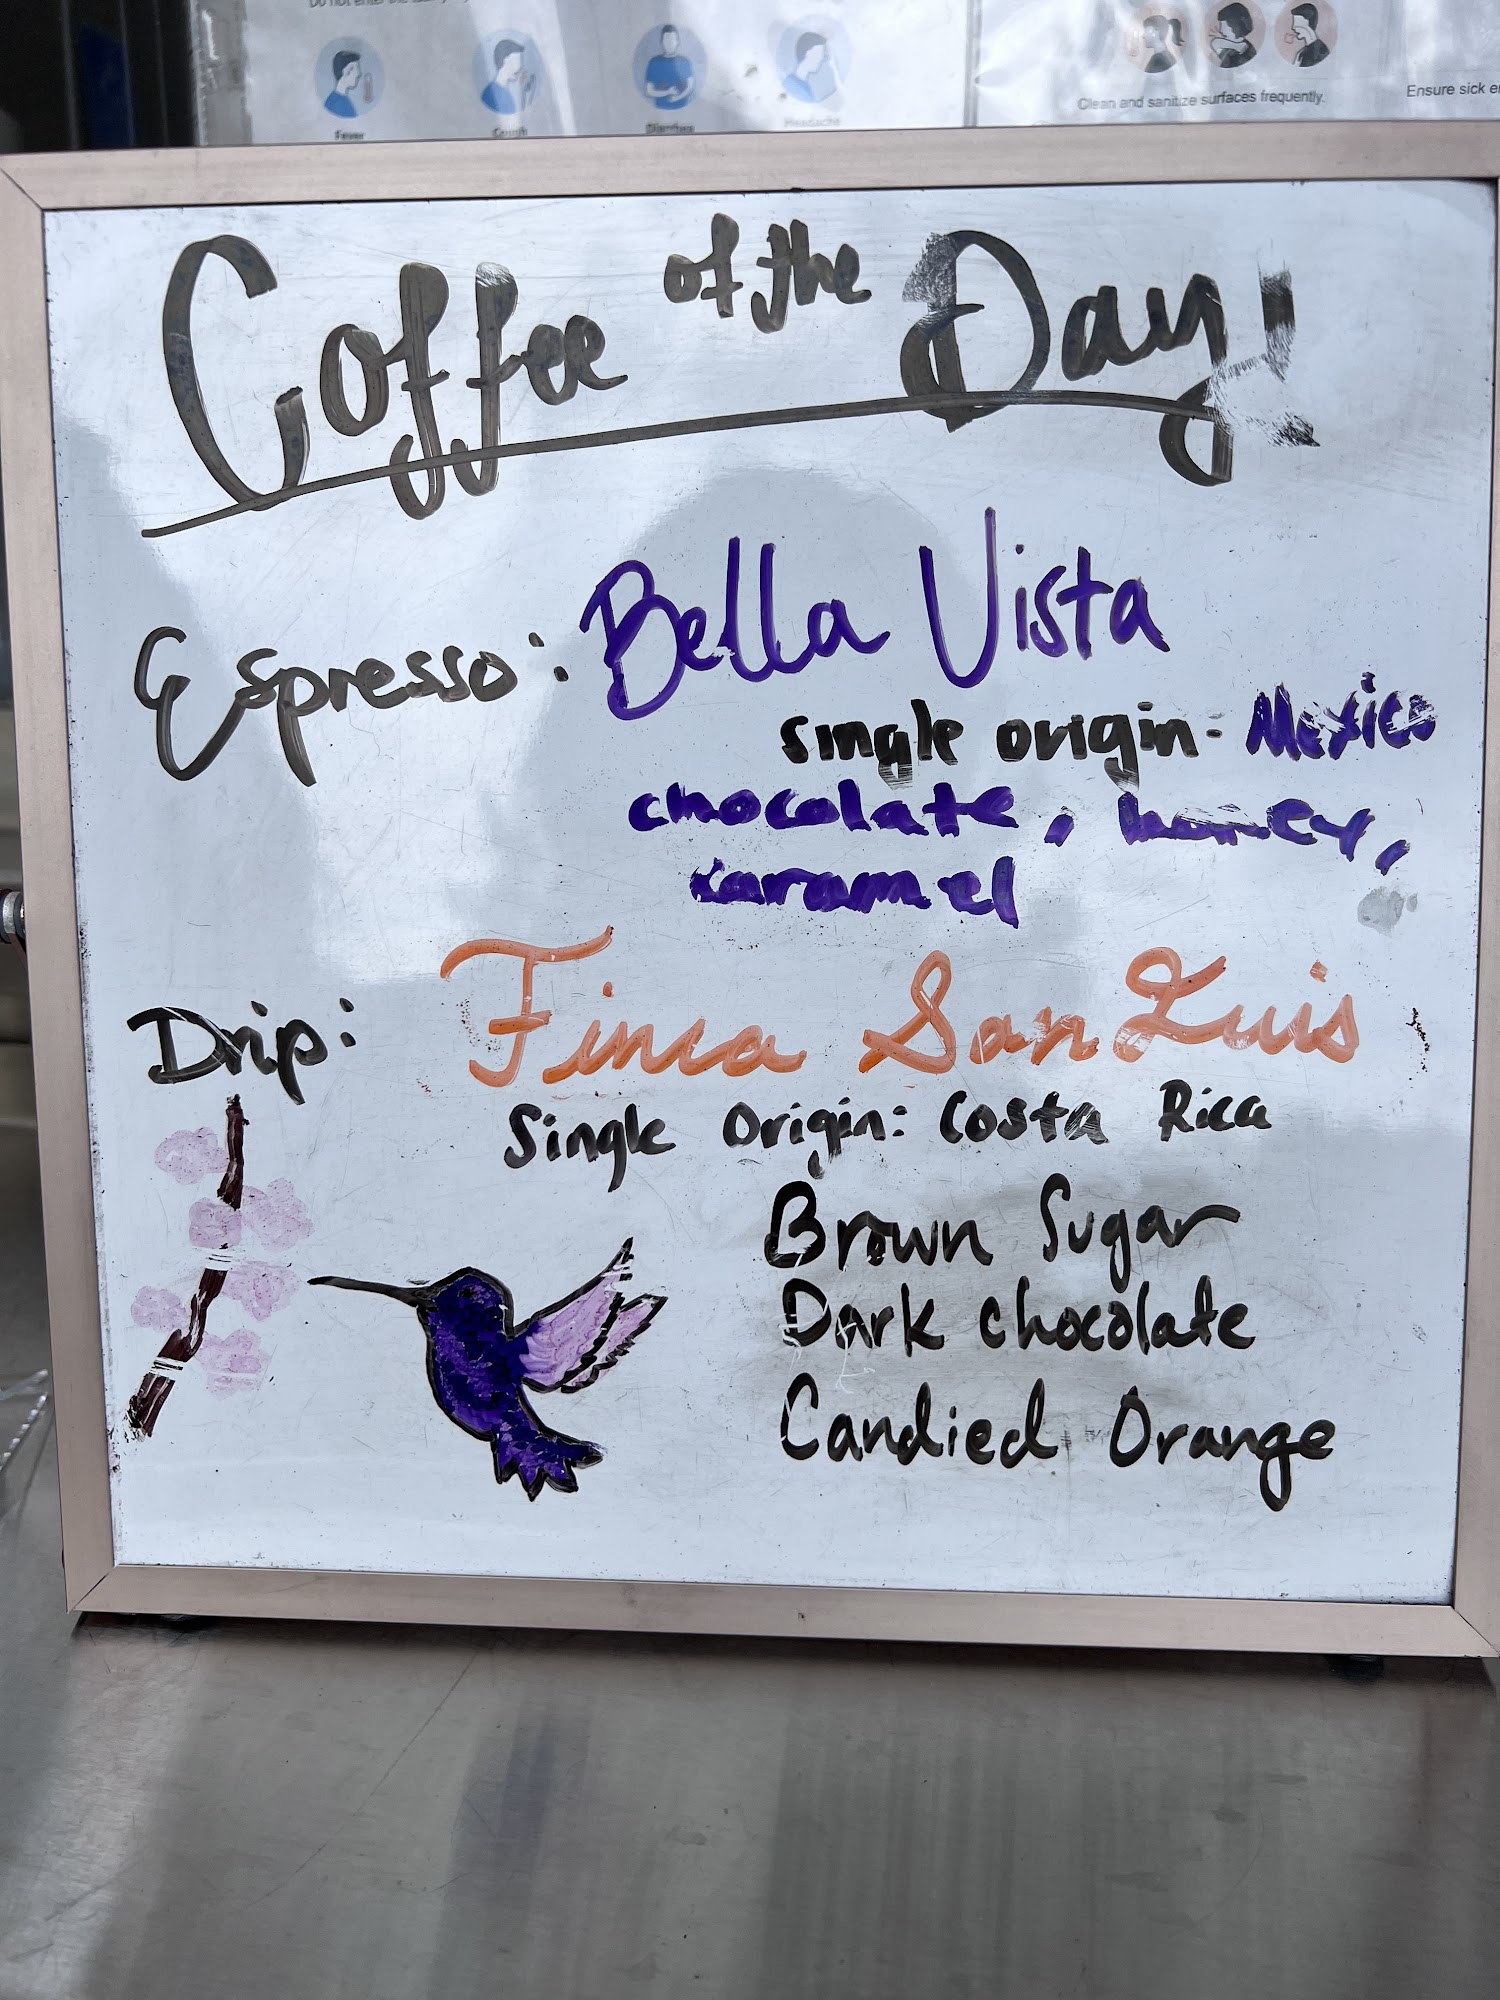 Fever
Cough
Diarrhea
Headache
Clean and sanitize surfaces frequently.
Ensure sick
Coffee of the Day!
Espresso: Bella Vista
single origin: Mexico
chocolate, honey,
karamel
Drip: Finca San Luis
Single Origin: Costa Rica
Brown Sugar
Dark chocolate
Candied Orange